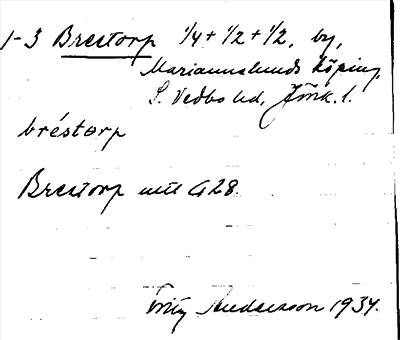 1-3 Brestorp 1/4 + 1/2 + 1/2, by,
Mariannelunds köping,
S. Vedbo hd, Jönk. l.
bréstorp
Brestorp utt G 28.
Fritz Andersson 1934.